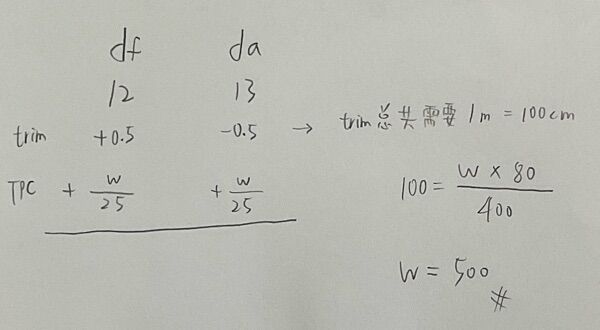 df da
12 13
trim +0.5 -0.5 → trim总共需要 1m = 100cm
TPC + w/25 + w/25
100 = w × 80 / 400
w = 500 #